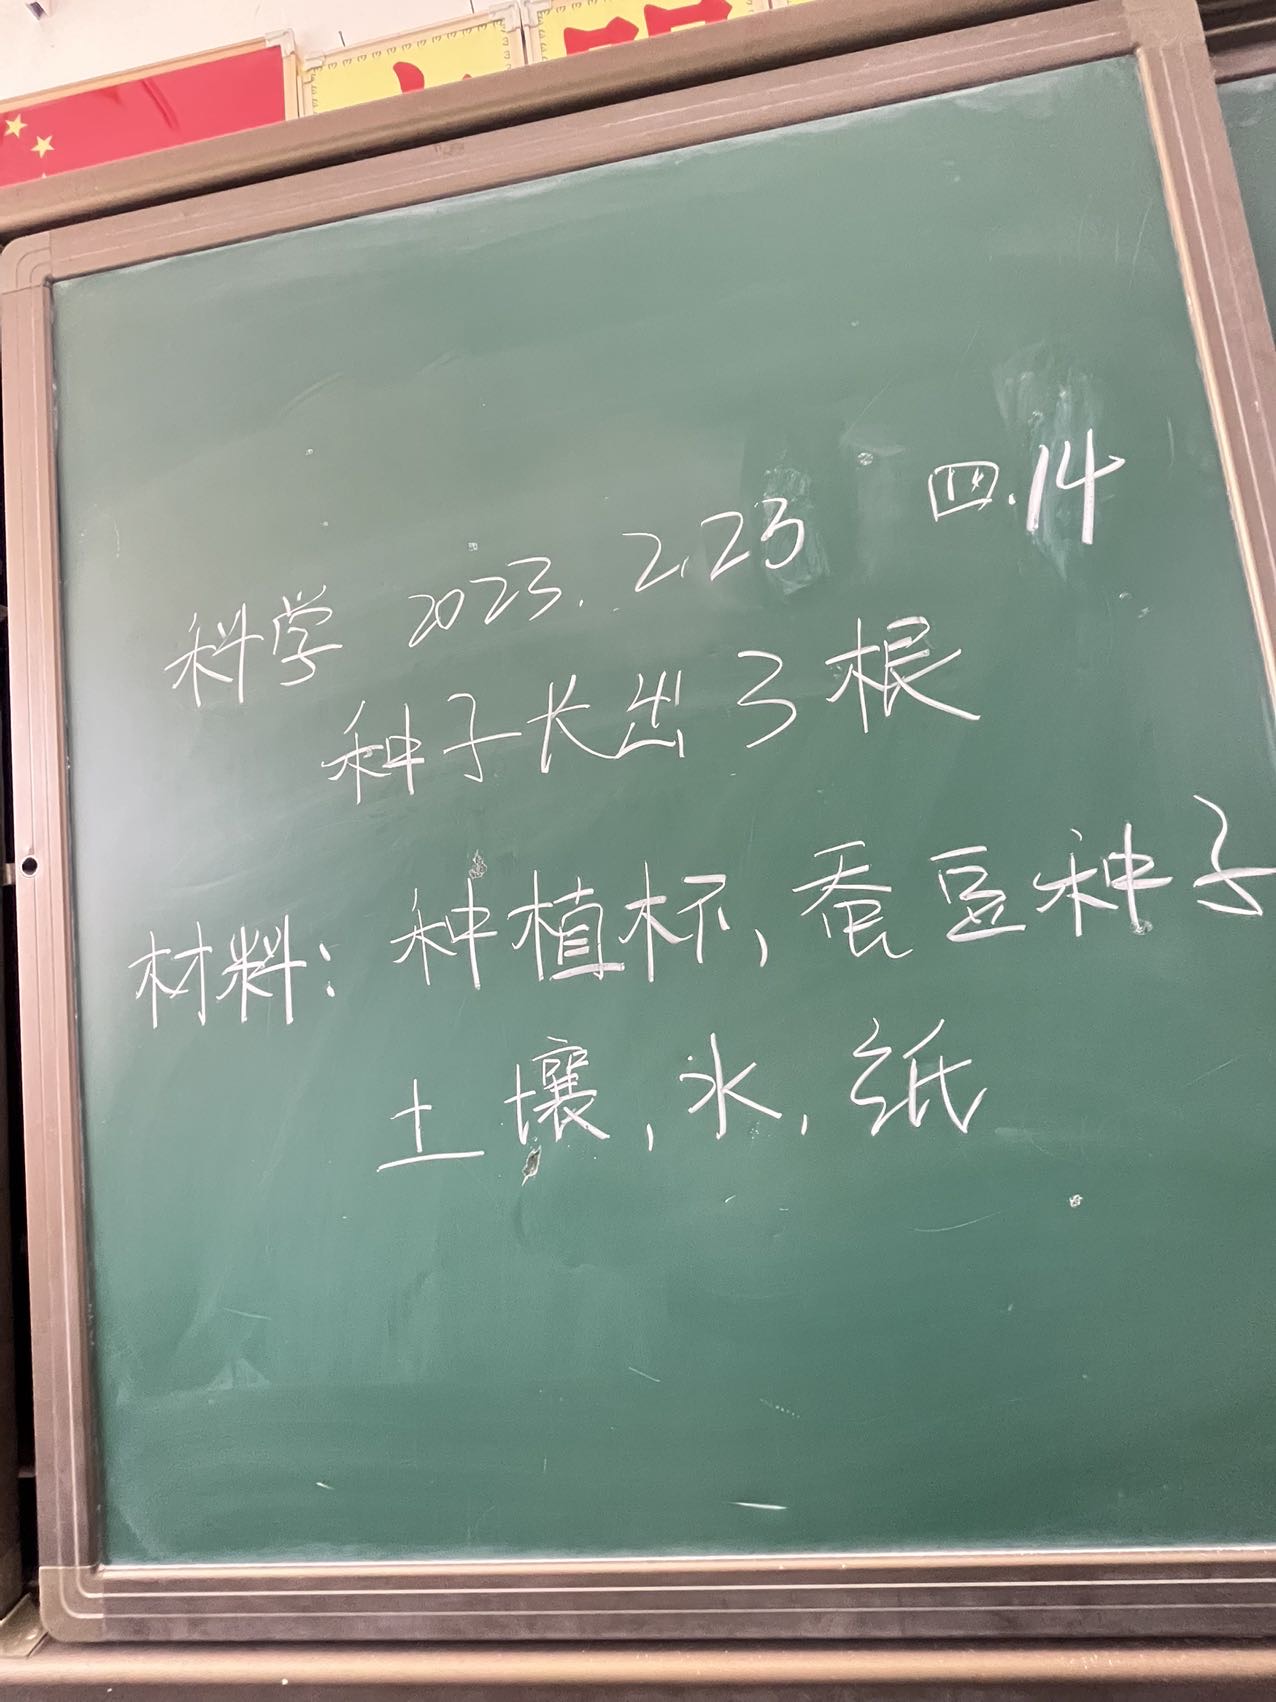 四.14
科学 2023.2.23
种子长出了根
材料：种植杯，蚕豆种子
土壤，水，纸